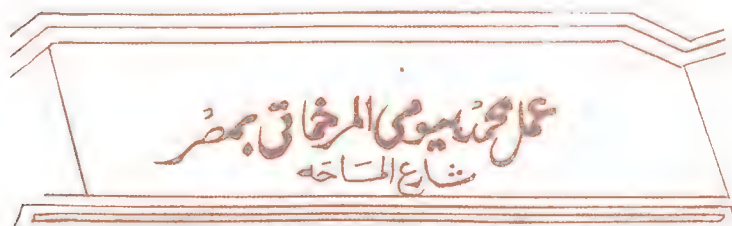 عمل محمد بيومى المرخماتى بمصر
شارع المساحه